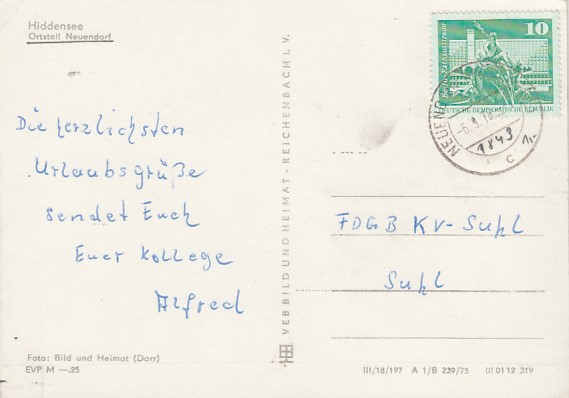 Hiddensee
Ortsteil Neuendorf
Die herzlichsten
Urlaubsgrüße
sendet Euch
Euer Kollege
Alfred
Foto: Bild und Heimat (Darr)
EVP M —.25
VEB BILD UND HEIMAT · REICHENBACH I. V.
10
Berlin-Rathausstraße
DEUTSCHE DEMOKRATISCHE REPUBLIK
NEUEN
-6.9.78
c
FDGB KV-Suhl
Suhl
III/18/197 A 1/B 239/75 01 01 12 319